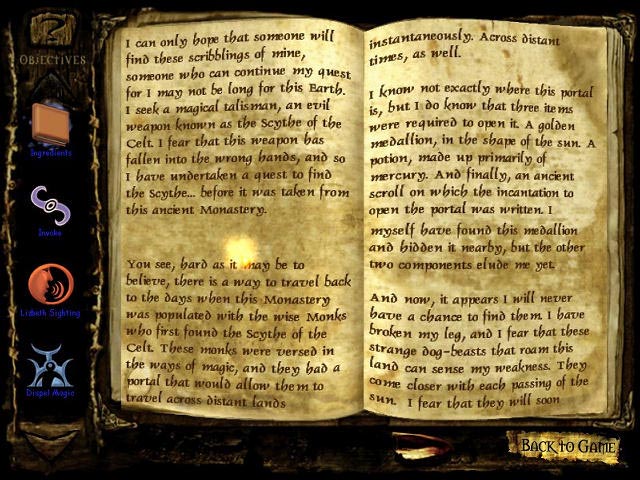 OBJECTIVES
Ingredients
Invoke
Lizbeth Sighting
Dispel Magic
I can only hope that someone will
find these scribblings of mine,
someone who can continue my quest
for I may not be long for this Earth.
I seek a magical talisman, an evil
weapon known as the Scythe of the
Celt. I fear that this weapon has
fallen into the wrong hands, and so
I have undertaken a quest to find
the Scythe... before it was taken from
this ancient Monastery.
You see, hard as it may be to
believe, there is a way to travel back
to the days when this Monastery
was populated with the wise Monks
who first found the Scythe of the
Celt. These monks were versed in
the ways of magic, and they had a
portal that would allow them to
travel across distant lands
instantaneously. Across distant
times, as well.
I know not exactly where this portal
is, but I do know that three items
were required to open it. A golden
medallion, in the shape of the sun. A
potion, made up primarily of
mercury. And finally, an ancient
scroll on which the incantation to
open the portal was written. I
myself have found this medallion
and hidden it nearby, but the other
two components elude me yet.
And now, it appears I will never
have a chance to find them. I have
broken my leg, and I fear that these
strange dog-beasts that roam this
land can sense my weakness. They
come closer with each passing of the
sun. I fear that they will soon
BACK TO GAME